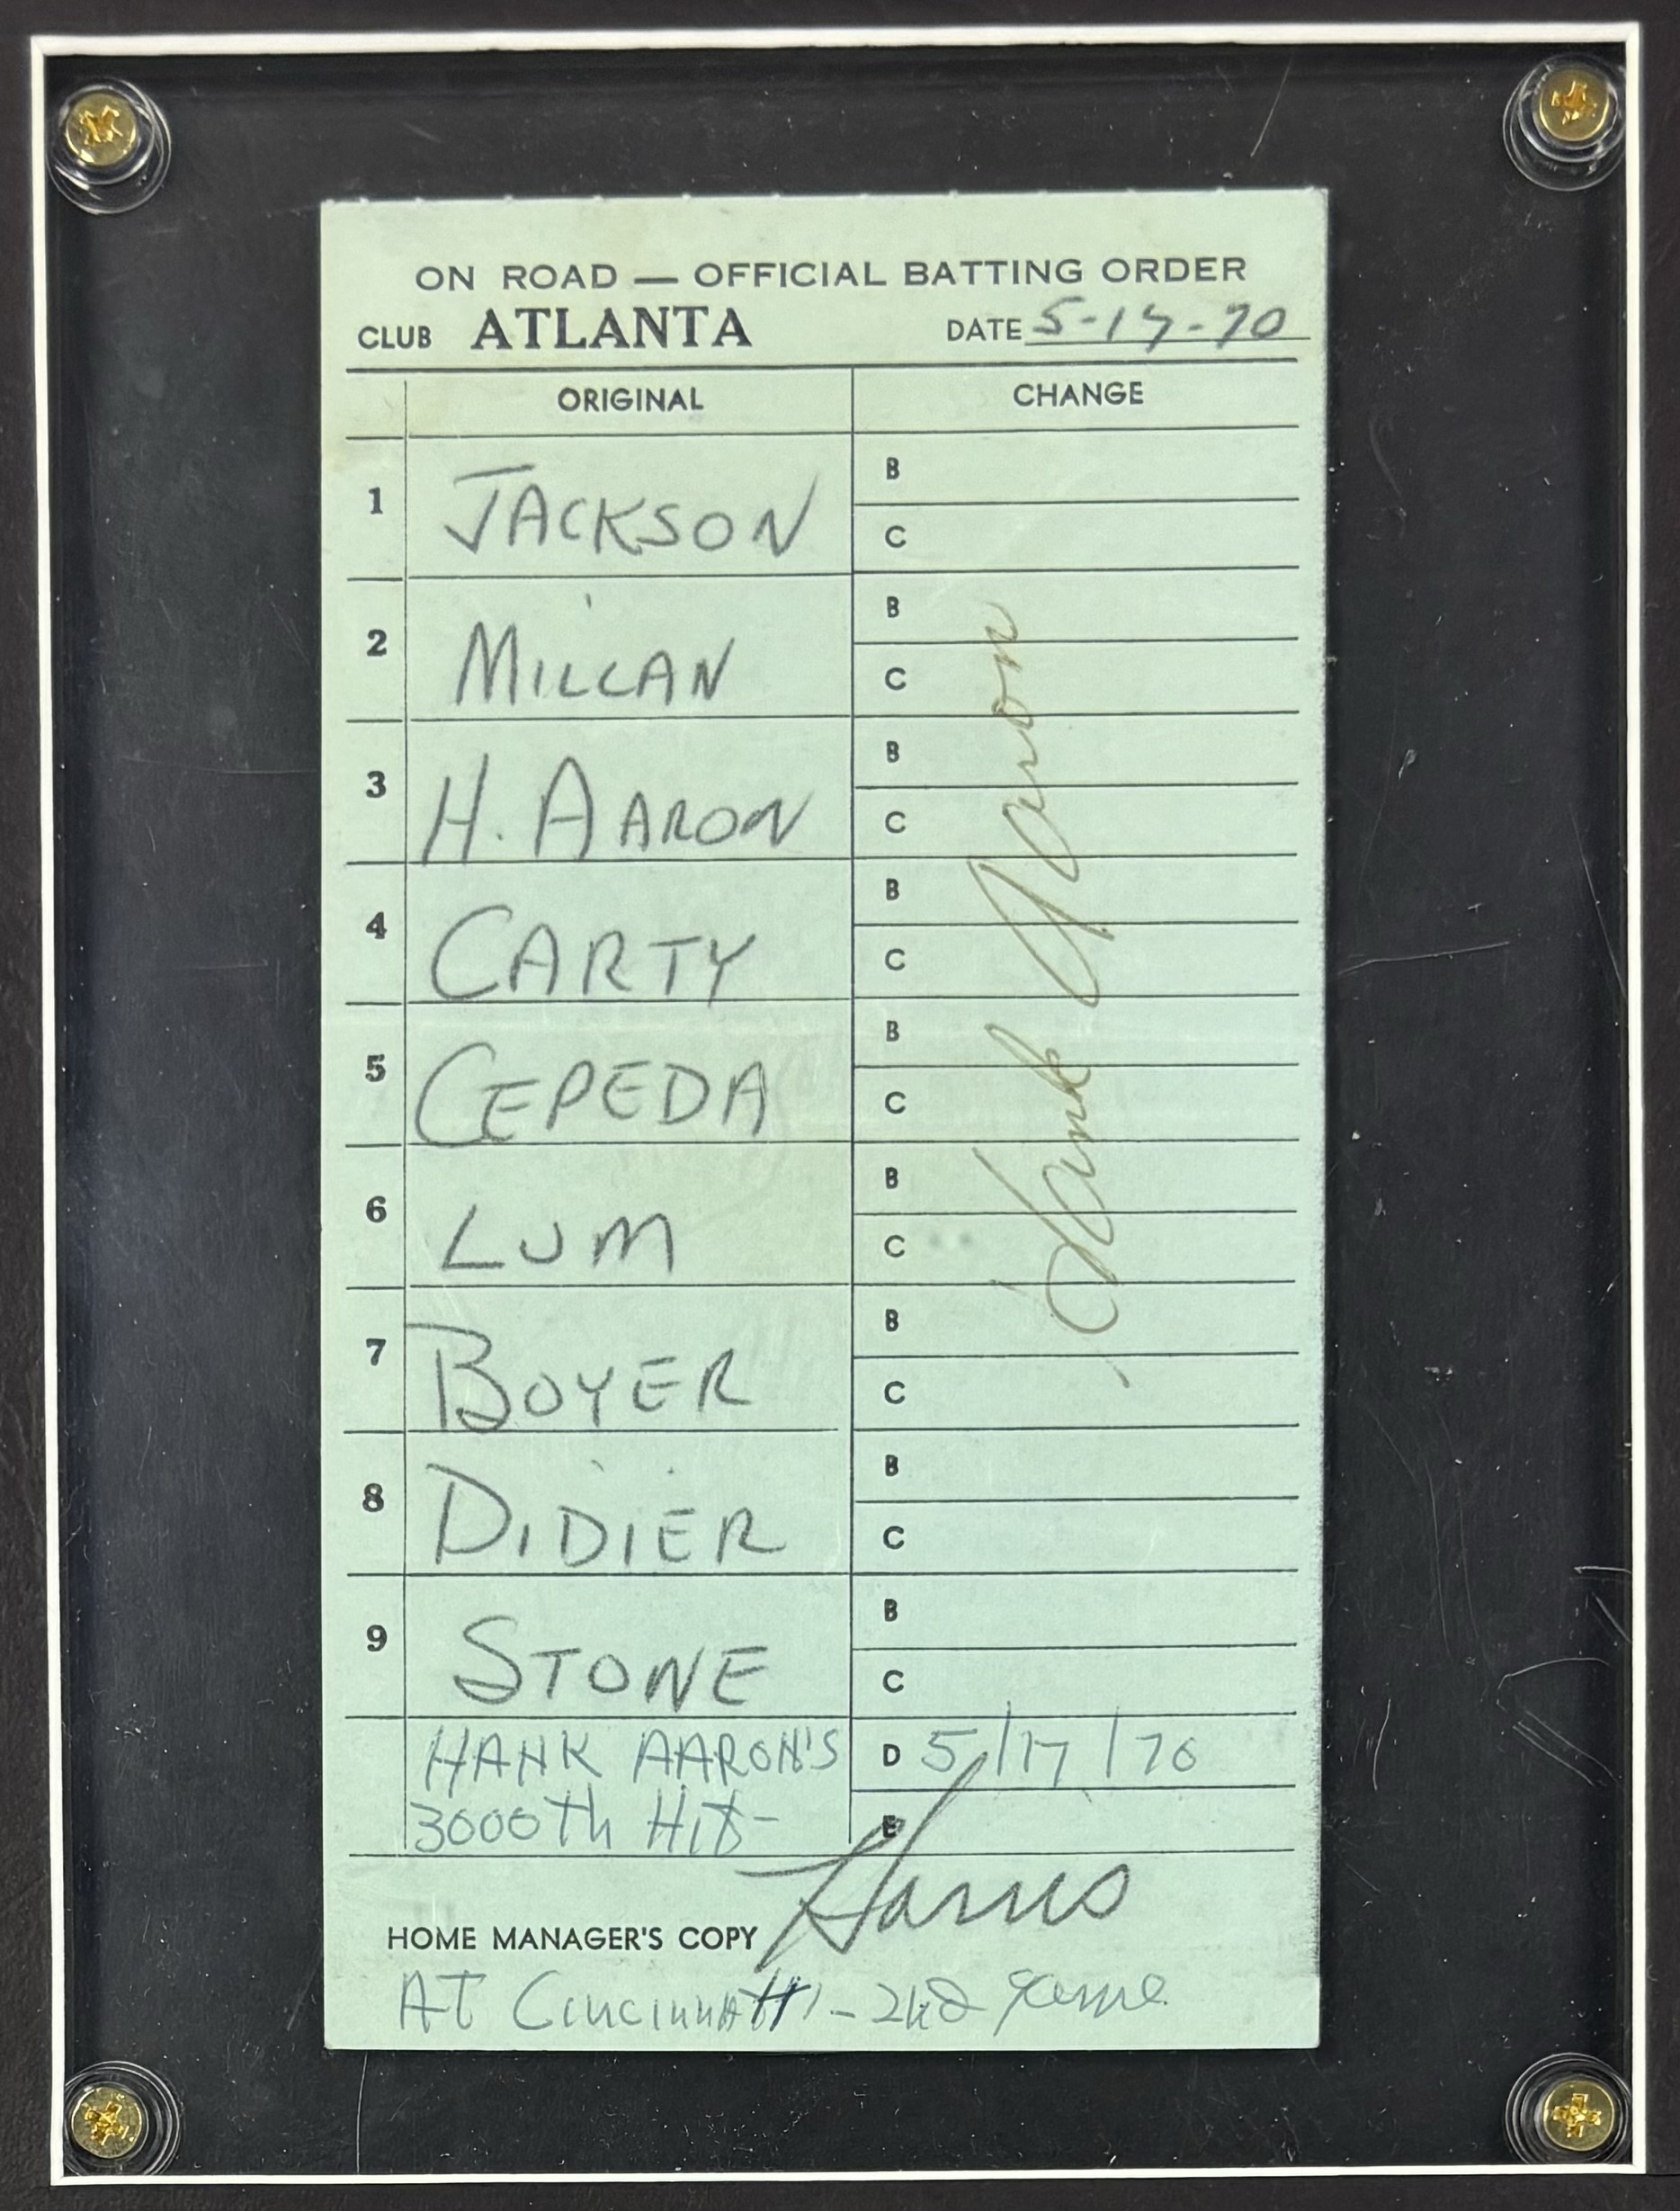 ON ROAD — OFFICIAL BATTING ORDER
CLUB ATLANTA DATE 5-17-70
ORIGINAL CHANGE
1 JACKSON B C
2 MILLAN B C
3 H. AARON B C
4 CARTY B C
5 CEPEDA B C
6 LUM B C
7 BOYER B C
8 DIDIER B C
9 STONE B C
Hank Aaron
HANK AARON'S D 5/17/70
3000th Hit- E
HOME MANAGER'S COPY Harris
AT Cincinnatti - 2nd game